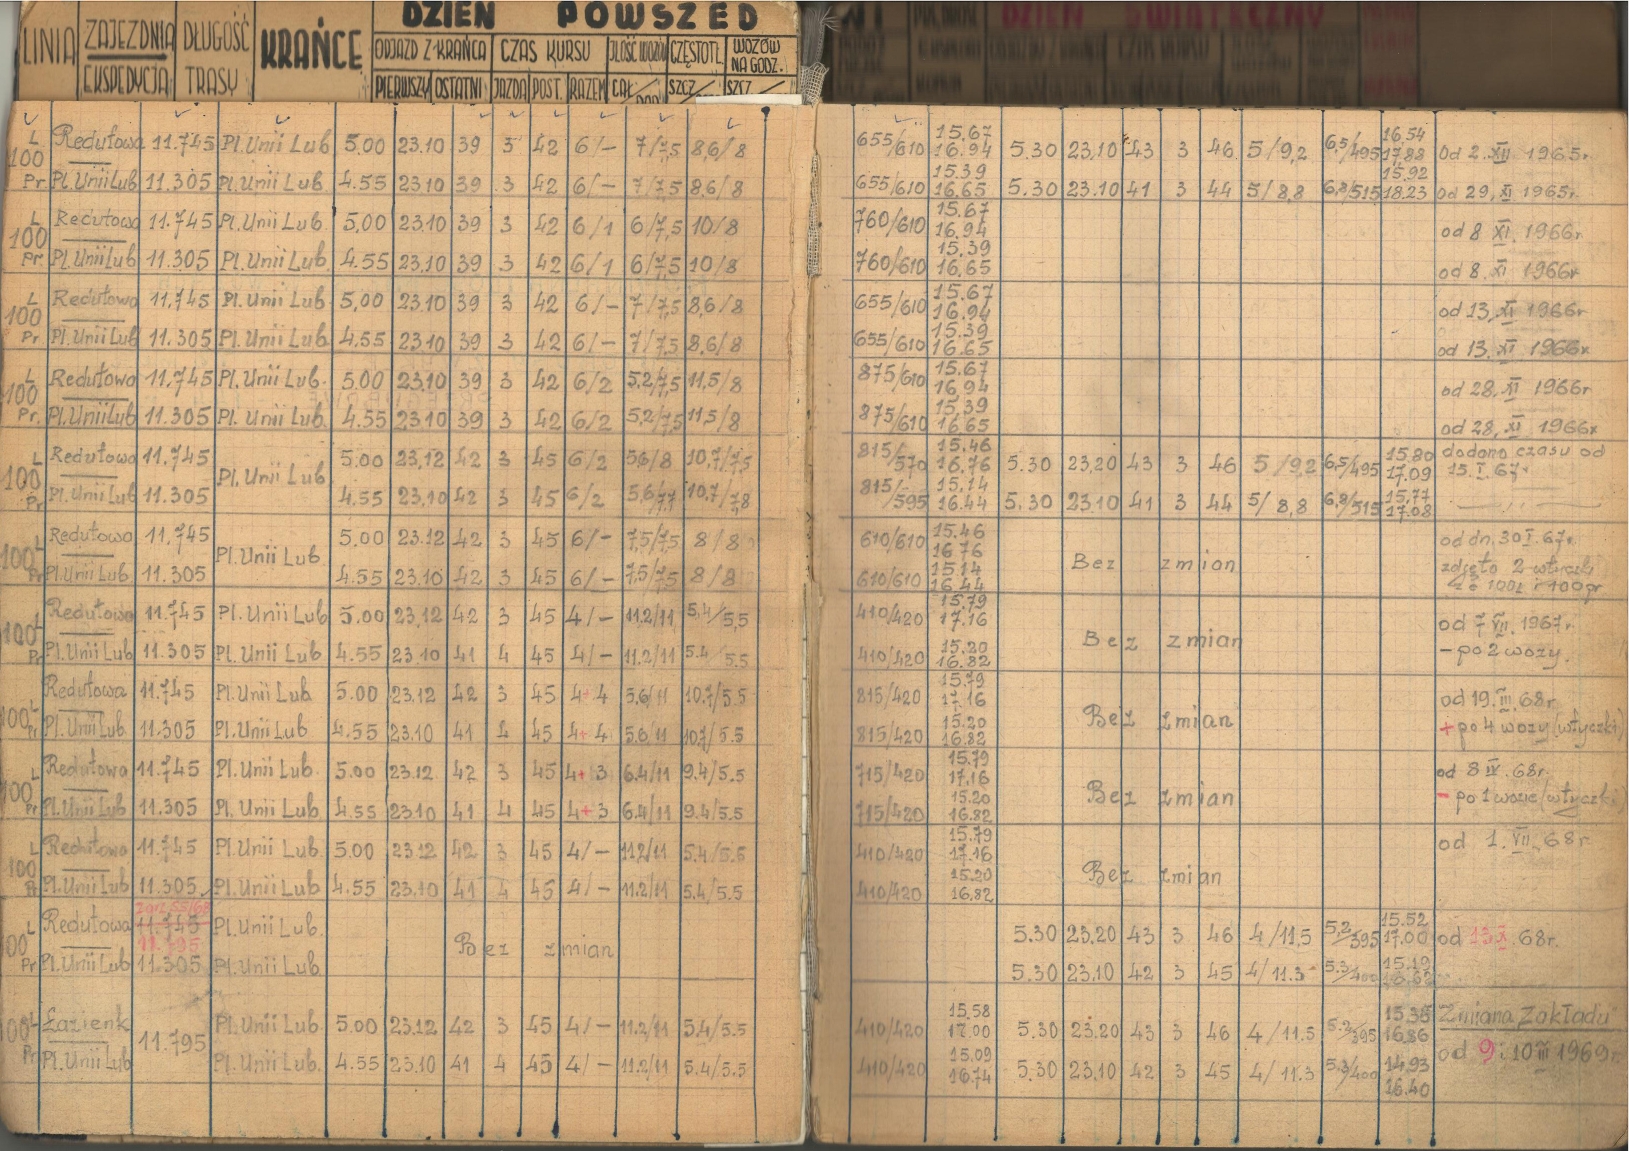 LINIA ZAJEZDNIA EKSPEDYCJA DŁUGOŚĆ TRASY KRAŃCE DZIEŃ POWSZED
ODJAZD Z KRAŃCA CZAS KURSU ILOŚĆ WOZÓW CZĘSTOTL. WOZÓW NA GODZ.
PIERWSZY OSTATNI JAZDA POST. RAZEM CAŁ/DOD SZCZ/ SZCZ/
DZIEŃ ŚWIĄTECZNY
L 100 Redutowa 11.745 Pl.Unii Lub 5.00 23.10 39 3 42 6/- 7/7,5 8,6/8 655/610 15.67 16.94 5.30 23.10 43 3 46 5/9,2 6,5/495 16.54 17.88 Od 2.XII 1965r.
Pr Pl.Unii Lub 11.305 Pl.Unii Lub. 4.55 23.10 39 3 42 6/- 7/7,5 8,6/8 655/610 15.39 16.65 5.30 23.10 41 3 44 5/8,8 6,8/515 15.92 18.23 od 29.XI 1965r.
L 100 Redutowa 11.745 Pl.Unii Lub. 5,00 23.10 39 3 42 6/1 6/7,5 10/8 760/610 15.67 16.94 od 8 XI. 1966r
Pr. Pl.Unii Lub 11.305 Pl.Unii Lub. 4.55 23.10 39 3 42 6/1 6/7,5 10/8 760/610 15.39 16.65 od 8. XI 1966r
L 100 Redutowa 11.745 Pl.Unii Lub 5,00 23.10 39 3 42 6/- 7/7,5 8,6/8 655/610 15.67 16.94 od 13.XI 1966r
Pr Pl.Unii Lub 11.305 Pl.Unii Lub. 4.55 23.10 39 3 42 6/- 7/7,5 8,6/8 655/610 15.39 16.65 od 13. XI 1966r
L 100 Redutowa 11.745 Pl.Unii Lub. 5.00 23.10 39 3 42 6/2 5.2/7,5 11,5/8 875/610 15.67 16.94 od 28.XI 1966r
Pr. Pl.Unii Lub 11.305 Pl.Unii Lub. 4.55 23.10 39 3 42 6/2 5,2/7,5 11,5/8 875/610 15.39 16.65 od 28.XI 1966r
L 100 Redutowa 11.745 Pl.Unii Lub 5.00 23,12 42 3 45 6/2 5,6/8 10,7/7,5 815/570 15.46 16.76 5.30 23,20 43 3 46 5/9,2 6,5/495 15.80 17.09 dodano czasu od 15.I.67r
Pr Pl.Unii Lub 11.305 4.55 23,10 42 3 45 6/2 5,6/7,7 10,7/7,8 815/595 15.14 16.44 5.30 23.10 41 3 44 5/8,8 6,8/515 15.77 17.08 —„—
L 100 Redutowa 11.745 Pl.Unii Lub 5.00 23.12 42 3 45 6/- 7,5/7,5 8/8 610/610 15.46 16.76 Bez zmian od dn. 30 I. 67r.
Pr Pl.Unii Lub 11.305 4.55 23.10 42 3 45 6/- 7,5/7,5 8/8 610/610 15.14 16.44 zdjęto 2 wtyczki z 100L i 100pr
L 100 Redutowa 11.745 Pl.Unii Lub 5.00 23,12 42 3 45 4/- 11.2/11 5,4/5,5 410/420 15.79 17.16 Bez zmian od 7 VII. 1967r.
Pr Pl.Unii Lub 11.305 Pl.Unii Lub 4.55 23.10 41 4 45 4/- 11.2/11 5.4/5.5 410/420 15.20 16.82 - po 2 wozy.
L 100 Redutowa 11.745 Pl.Unii Lub 5.00 23,12 42 3 45 4+4 5.6/11 10.7/5.5 815/420 15.79 17.16 Bez zmian od 19.III.68r
Pr Pl.Unii Lub 11.305 Pl.Unii Lub 4.55 23.10 41 4 45 4+4 5.6/11 10.7/5.5 815/420 15.20 16.82 + po 4 wozy (wtyczki)
L 100 Redutowa 11.745 Pl.Unii Lub 5.00 23.12 42 3 45 4+3 6.4/11 9.4/5.5 715/420 15.79 17.16 Bez zmian od 8 IV. 68r.
Pr Pl.Unii Lub 11.305 Pl.Unii Lub 4.55 23.10 41 4 45 4+3 6.4/11 9.4/5.5 715/420 15.20 16.82 - po 1 wozie (wtyczki)
L 100 Redutowa 11.745 Pl.Unii Lub. 5.00 23.12 42 3 45 4/- 11.2/11 5.4/5.5 410/420 15.79 17.16 Bez zmian od 1. VII. 68r.
Pr Pl.Unii Lub 11.305 Pl.Unii Lub 4.55 23.10 41 4 45 4/- 11.2/11 5.4/5.5 410/420 15.20 16,82
L 100 Redutowa 11.745 11.795 Pl.Unii Lub. Bez zmian 5.30 23.20 43 3 46 4/11,5 5,2/395 15.52 17.00 od 13 X. 68r.
Pr Pl.Unii Lub 11.305 Pl.Unii Lub 5.30 23.10 42 3 45 4/11.3 5.3/400 15.19
L 100 Łazienk 11.795 Pl.Unii Lub. 5.00 23.12 42 3 45 4/- 11.2/11 5.4/5.5 410/420 15.58 17.00 5.30 23.20 43 3 46 4/11.5 5.2/395 15.35 16.86 Zmiana Zakładu
Pr Pl.Unii Lub Pl.Unii Lub. 4.55 23.10 41 4 45 4/- 11.2/11 5.4/5.5 410/420 15.09 16.74 5.30 23.10 42 3 45 4/11.3 5.3/400 14.93 16.40 od 9 i 10 III 1969r.